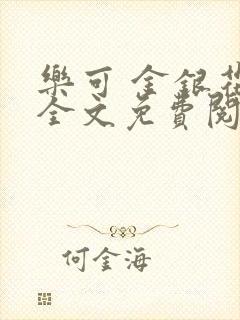 樂可 金銀花
全文免費閱
何金海